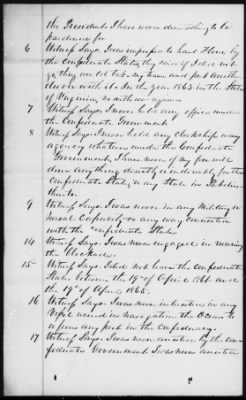 the President I have never done nothing to be
pardoned for
6 Witness Says I was impressed to haul flour by
the Confederate States, they said if I did not
go, they would take my team and put another
driver with it. In the year 1863 in the State
of Virginia,
7 Witness Says I never held any office under
the Confederate Government
8 Witness Says I never held any clerkship or any
agency whatever under the Confederate
Government, I have never of my free will
done anything directly or indirectly for the
Confederate States or any State in Rebellion
9 Witness Says I was never in any Military or
Naval Capacity or any way connected
with the Confederate States
14 Witness Says I was never engaged in running
the Blockade
15 Witness Says I did not leave the Confederate
States between the 19th of April 1861 and
the 19th of April 1865.
16 Witness Says I was never interested in any
Vessel used in Navigation the Ocean to
or from any port in the Confederacy
17 Witness Says I was never arrested by the Con
federate Government I was never arrested